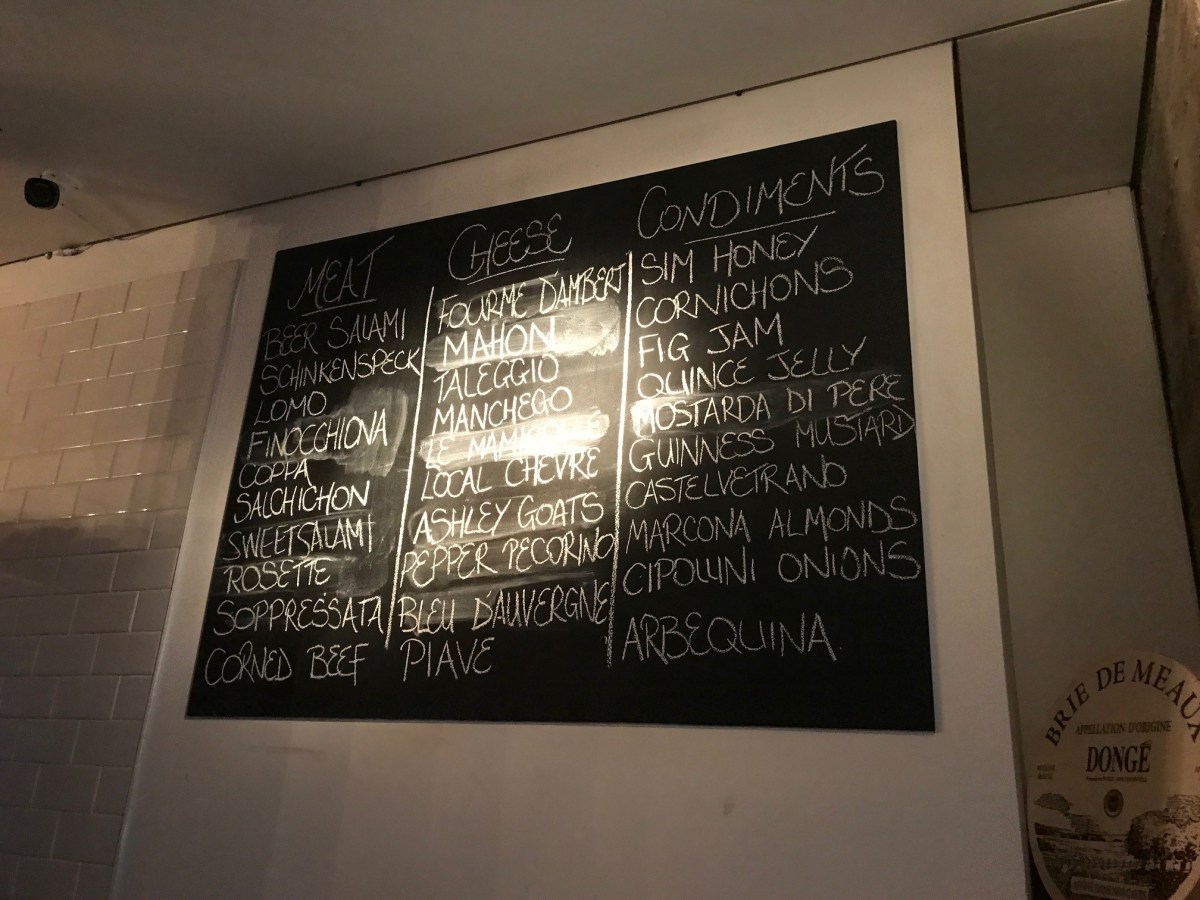 MEAT
BEER SALAMI
SCHINKENSPECK
LOMO
FINOCCHIONA
COPPA
SALCHICHON
SWEET SALAMI
ROSETTE
SOPPRESSATA
CORNED BEEF
CHEESE
FOURME D'AMBERT
MAHON
TALEGGIO
MANCHEGO
LE
LOCAL CHEVRE
ASHLEY GOATS
PEPPER PECORINO
BLEU D'AUVERGNE
PIAVE
CONDIMENTS
SIM HONEY
CORNICHONS
FIG JAM
QUINCE JELLY
MOSTARDA DI PERE
GUINNESS MUSTARD
CASTELVETRANO
MARCONA ALMONDS
CIPOLLINI ONIONS
ARBEQUINA
BRIE DE MEAUX
APPELLATION D'ORIGINE
DONGÉ